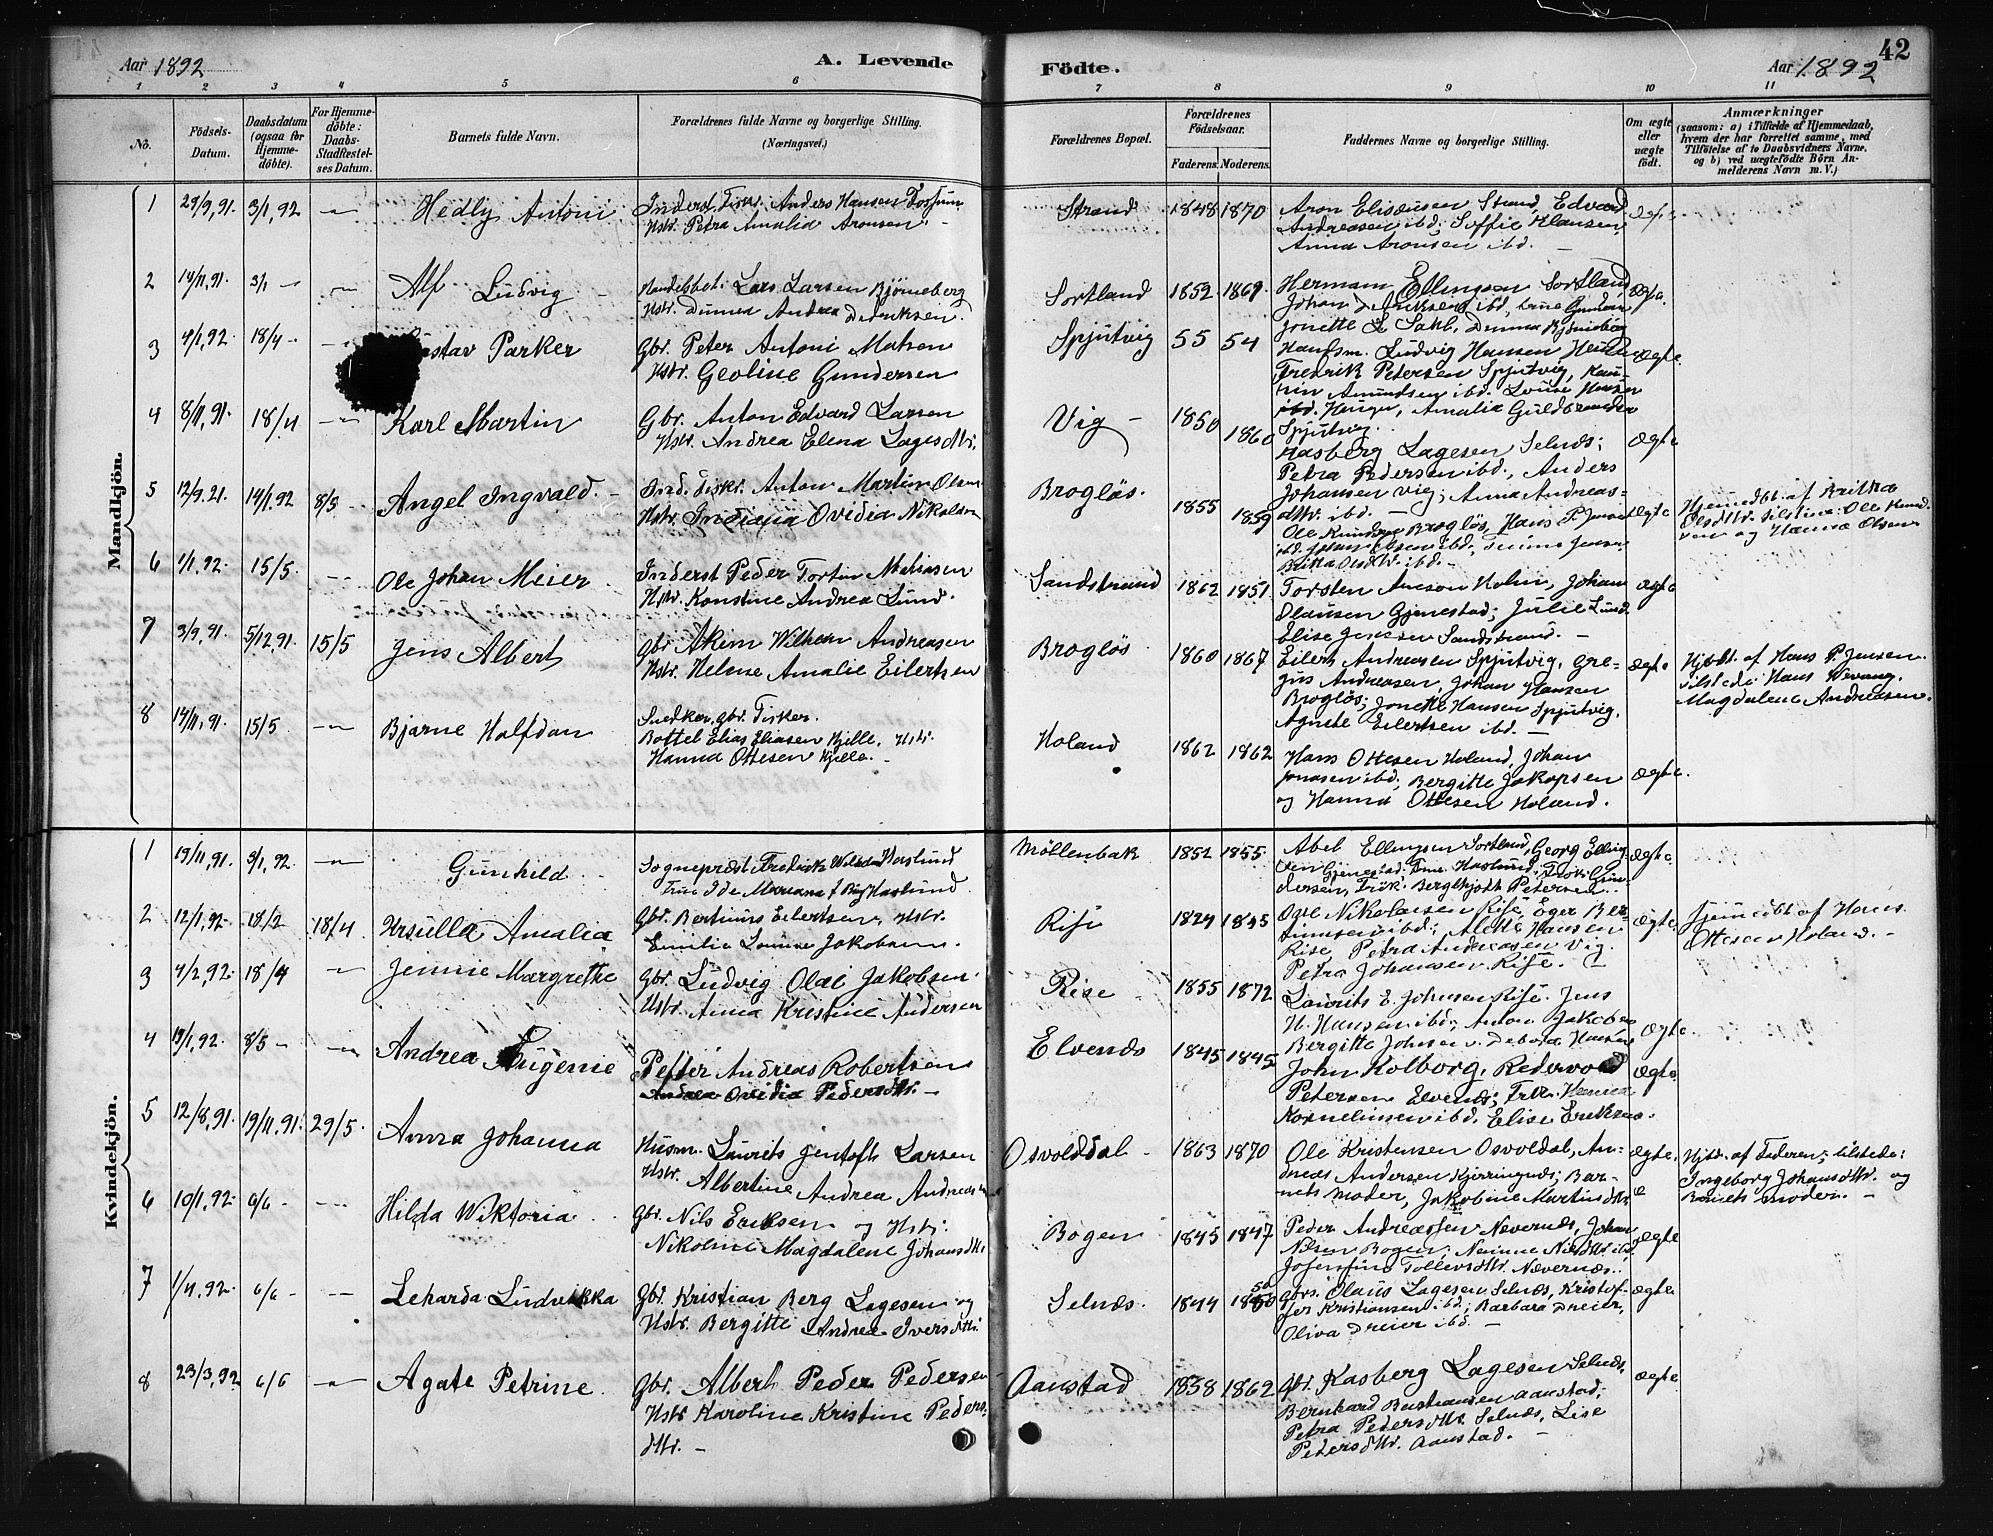 Aar 1892
A. Levende
Födte.
Aar 1892
42
1 2 3 4 5 6 7 8 9 10 11
No.
Födsels-
Datum.
Daabsdatum
(ogsaa for
Hjemme-
döbte).
For Hjemme-
döbte:
Daabs-
Stadfestel-
ses Datum.
Barnets fulde Navn.
Forældrenes fulde Navne og borgerlige Stilling.
(Næringsvei.)
Forældrenes Bopæl.
Forældrenes
Födselsaar.
Faderens. Moderens.
Faddernes Navne og borgerlige Stilling.
Om ægte
eller
uægte
födt.
Anmærkninger
(saasom: a) i Tilfælde af Hjemmedaab,
hvem der har forrettet samme, med
Tilföielse af to Daabsvidners Navne,
og b) ved uægtefödte Börn An-
melderens Navn m. V.)
Mandkjön.
1 29/9,91. 3/1,92 Hedly Antoni
Inderst, Fisk. Anders Hansen Fossum
Hstr. Petra Amalia Aronsen.
Strand 1848 1870
Aron Eliseussen Strand, Edvard
Andreasen ibd; Soffie Klausen,
Anna Aronsen ibd.
2 14/11,91. 3/1 Alf Ludvig
Handelsbet: Lars Larsen Bjørneberg
Hstr. Dunnea Andrea Dideriksen.
Sortland 1852 1869.
Hermann Ellingsen Sortland
ægte.
3 4/1,92. 18/4 Parker
Gbr. Peter Antoni Madsen
Hstr. Geoline Gundersen
Spjutvig 55 54
Handsm. Ludvig Hansen
ægte.
Fredrik Petersen Spjutvig,
Amundsen ibd. Louise Hansen
Amalia Guldbrandsen
Spjutvig.
4 8/11,91. 18/4 Karl Martin
Gbr. Anton Edvard Larsen
Hstr. Andrea Elena Lagesdtr.
Vig 1850 1860
Kasberg Lagesen Selnæs;
Petra Pedersen ibd., Anders
Johansen Vig; Anna Andreas-
dttr. ibd.
ægte
5 12/9.91. 14/1,92 8/5 Angel Ingvald.
Ind. Fiskr. Anton Martin Olsen
Hstr. Indiana Ovidia Nikolsen
Brogløs. 1855 1859
Ole Knudsen Brogløs, Hans P. Jensen
Brita Olsdttr. ibd.
ægte
Hjemdbt. af Britha
Olsdttr. tilstede: Ole Knud-
sen og Hanna Olsen
6 1/1,92. 15/5. Ole Johan Meier
Inderst Peder Tortin Mathiasen
Hstr. Konstine Andrea Lund.
Sandstrand 1862 1851
Torsten Holm, Johan
Olausen Gjenestad; Julie Lund
Elise Jensen Sandstrand.
ægte
7 3/9,91. 5/12,91. 15/5 Jens Albert
Gbr. Akim Wilhelm Andreasen
Hstr. Helene Amalie Eilertsen
Brogløs 1860 1867
Eilert Andreasen Spjutvig, Gre-
gus Andreasen, Johan Hansen
Brogløs; Jonette Hansen Spjutvig,
Agnete Eilertsen ibd.
ægte
Hjdbt. af Hans P. Jensen.
tilstede: Hans Nevang,
Magdalene Andreasen.
8 14/11,91. 15/5 Bjarne Halfdan
Snedker. Gbr. Fisker.
Bottel Elias Eliasen Kjille, Hstr.
Hanna Ottesen Kjille.
Holand 1862 1862
Hans Ottesen Holand, Johan
Jonasen ibd; Bergitte Jakopsen
og Hanna Ottesen Holand.
ægte.
Kvindekjön.
1 19/11,91. 3/1,92. Gunhild
Sogneprest Fredrik Wilhelm Haslund
Frue Ide Mariana f. Haslund.
Møllenbak 1852 1855
Abel Ellingsen Sortland, Georg Elling-
sen Gjenestad, Frue Haslund, Frøk. Gun-
dersen, Frøk. Bergthjodt Petersen.
ægte.
2 12/1,92. 18/2 18/4 Ursulla Amalia
Gbr. Bertinus Eilertsen, Hstr.
Emilie Lovise Jakobsen.
Rise 1824 1845
Ove Nikolaisen Rise, Eger Ber-
tinusen ibd; Alette Hansen
Rise, Petra Andreasen Vig.
Petra Johansen Rise.
ægte.
Hjemdbt af Hans
Ottesen Holand.
3 4/2,92. 18/4 Jennie Margrethe
Gbr. Ludvig Olai Jakobsen.
Hstr. Anna Kristine Andersen
Rise 1855 1872
Laurits E. Johnsen Rise. Jens
H. Hansen ibd; Anton Jakobsen
Bergitte Johnsen Debora Hansen
ægte.
4 19/1,92. 8/5 Andrea Eugenie
Petter Andreas Robertsen
Andrea Ovidia Pedersdttr.
Elvenæs 1845 1845
John Kolborg, Redervold
Petersen Elvenæs; Frk. Hanna
Korneliussen ibd. Elise Eriksen.
ægte.
5 12/8,91. 19/11,91. 29/5. Anna Johanna
Husm. Laurits Jentoft Larsen
Hstr. Albertine Andrea Andreasen
Osvolddal 1863 1870
Ole Kristensen Osvoldal, An-
dreas Andersen Kjerringnæs; Bar-
nets Moder, Jakobine Martinsdttr.
ægte.
Hjdbt. af Faderen; tilstede:
Ingeborg Johansdttr. og
Barnets moder.
6 10/1,92. 6/6 Hilda Wiktoria
Gbr. Nils Eriksen og Hstr.
Nikoline Magdalene Johansdttr.
Bogen 1845 1847
Peder Andreassen Nevernæs, Johan
Nilsen Bogen, Nilsdttr. ibd.
Josefine Tollevsdttr. Nevernæs.
ægte
7 1/4,92. 6/6 Leharda Ludvikka
Gbr. Kristian Berg Lagesen og
Hstr. Bergitte Andrea Iversdttr.
Selnæs. 1844 1850
Gbrs. Olaus Lagesen Selnæs, Kristof-
fer Kristiansen ibd; Barbara Dreier,
Oliva Dreier ibd.
ægte
8 23/3,92 6/6 Agate Petrine.
Gbr. Albert Peder Pedersen
Hstr Karoline Kristine Peders-
dttr.
Aanstad 1858 1862
Gbr. Kasberg Lagesen Selnæs,
Bernhard Bastiansen Aanstad;
Petra Pedersdttr. Selnæs, Lise
Pedersdttr. Aanstad.
ægte